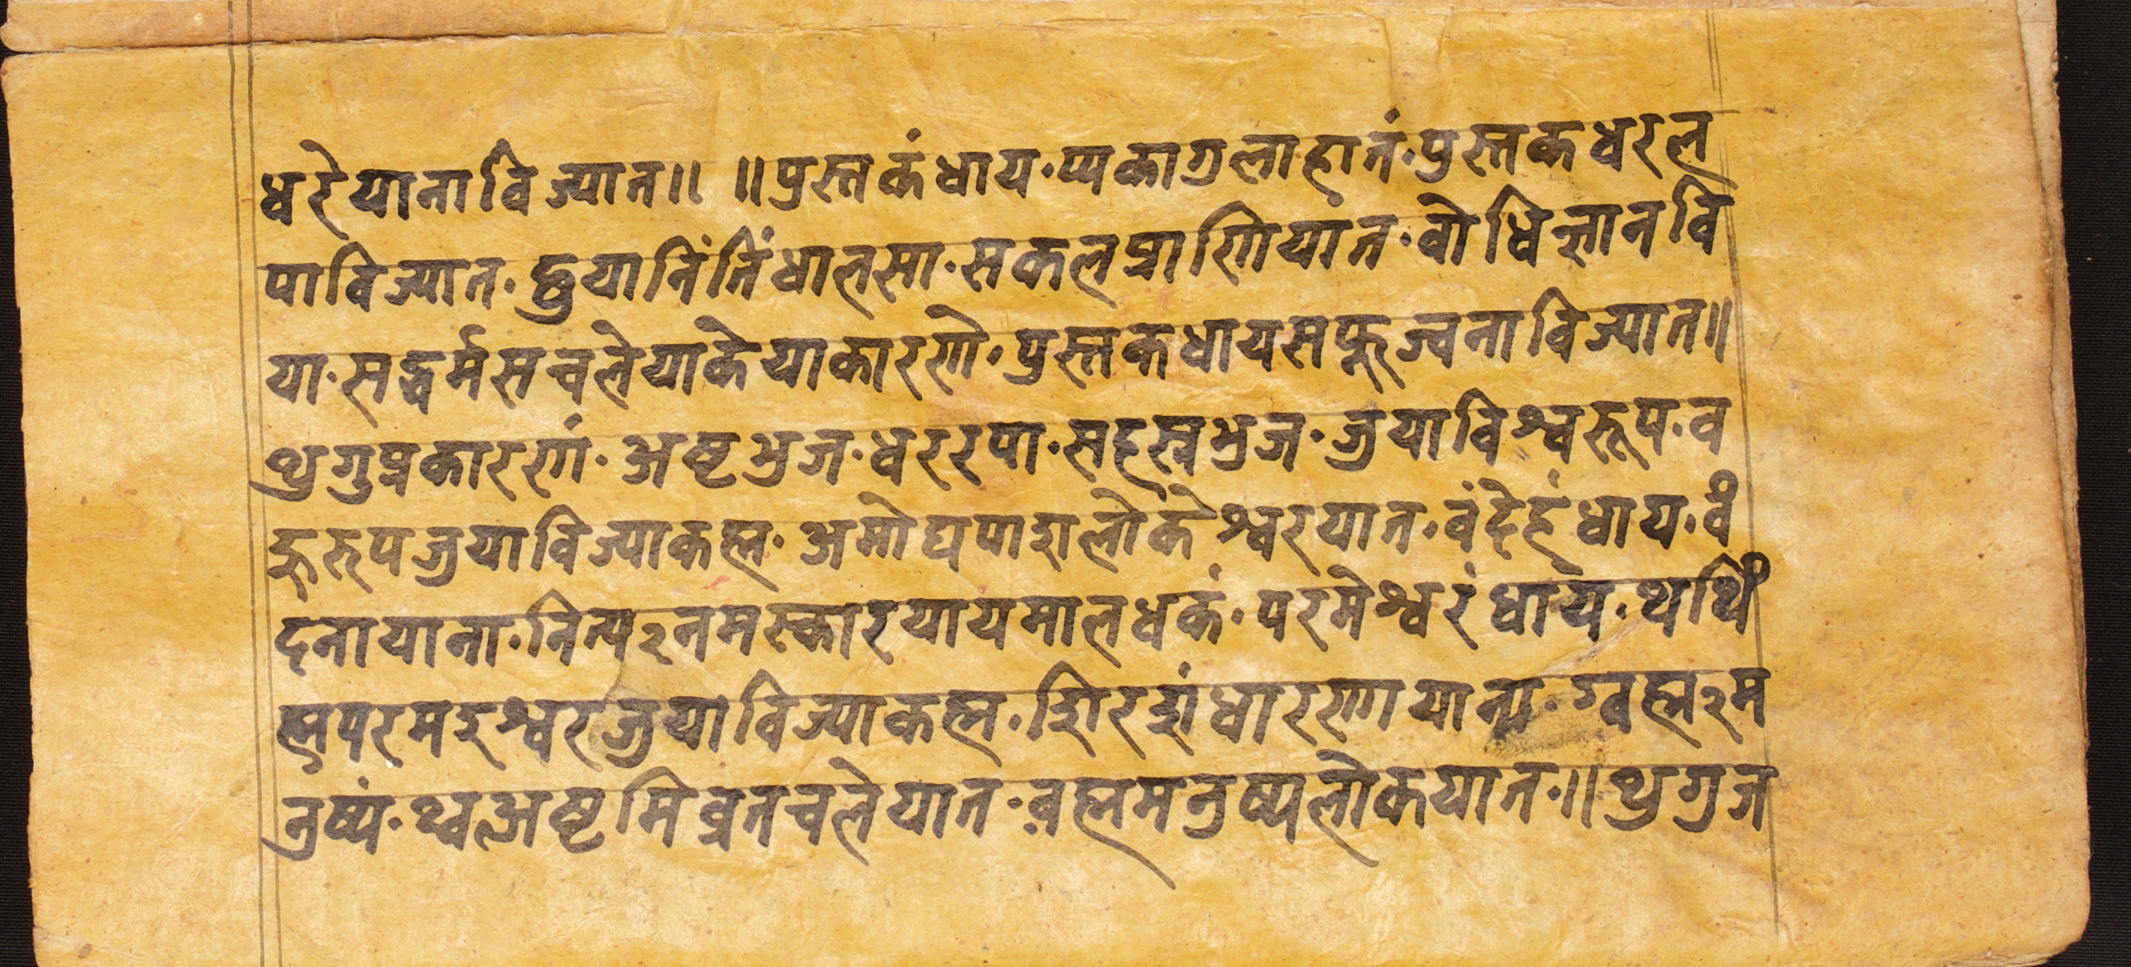 धरेयानाविज्यात॥ ॥पुस्तकंधाय·प्यकागुलाहातं·पुस्तकधरल
पाविज्यात·छुयानिंतिंधालसा·सकलप्राणियातं·बोधिज्ञानवि
या·सद्धर्मसचलेयाकेयाकारणे·पुस्तकधायसफूज्वनाविज्यात॥
थुगुप्रकारणं·अष्टभुज·धररपा·सहस्रभुज·जुयाविश्वरूप·व
हुरुपजुयाविज्याकह्म·अमोघपाशलोकेश्वरयात·वंदेहंधाय·वं
दनायाना·नित्य२नमस्कारयायमालधकं·परमेश्वरंधाय·थथिं
ह्मपरमइश्वरजुयाविज्याकह्म·शिरशंधारणायाना·ग्वह्म२म
नुष्यं·थ्वअष्टमिव्रतचलेयात·व्रह्ममनुष्यलोकयात·॥थुगुज